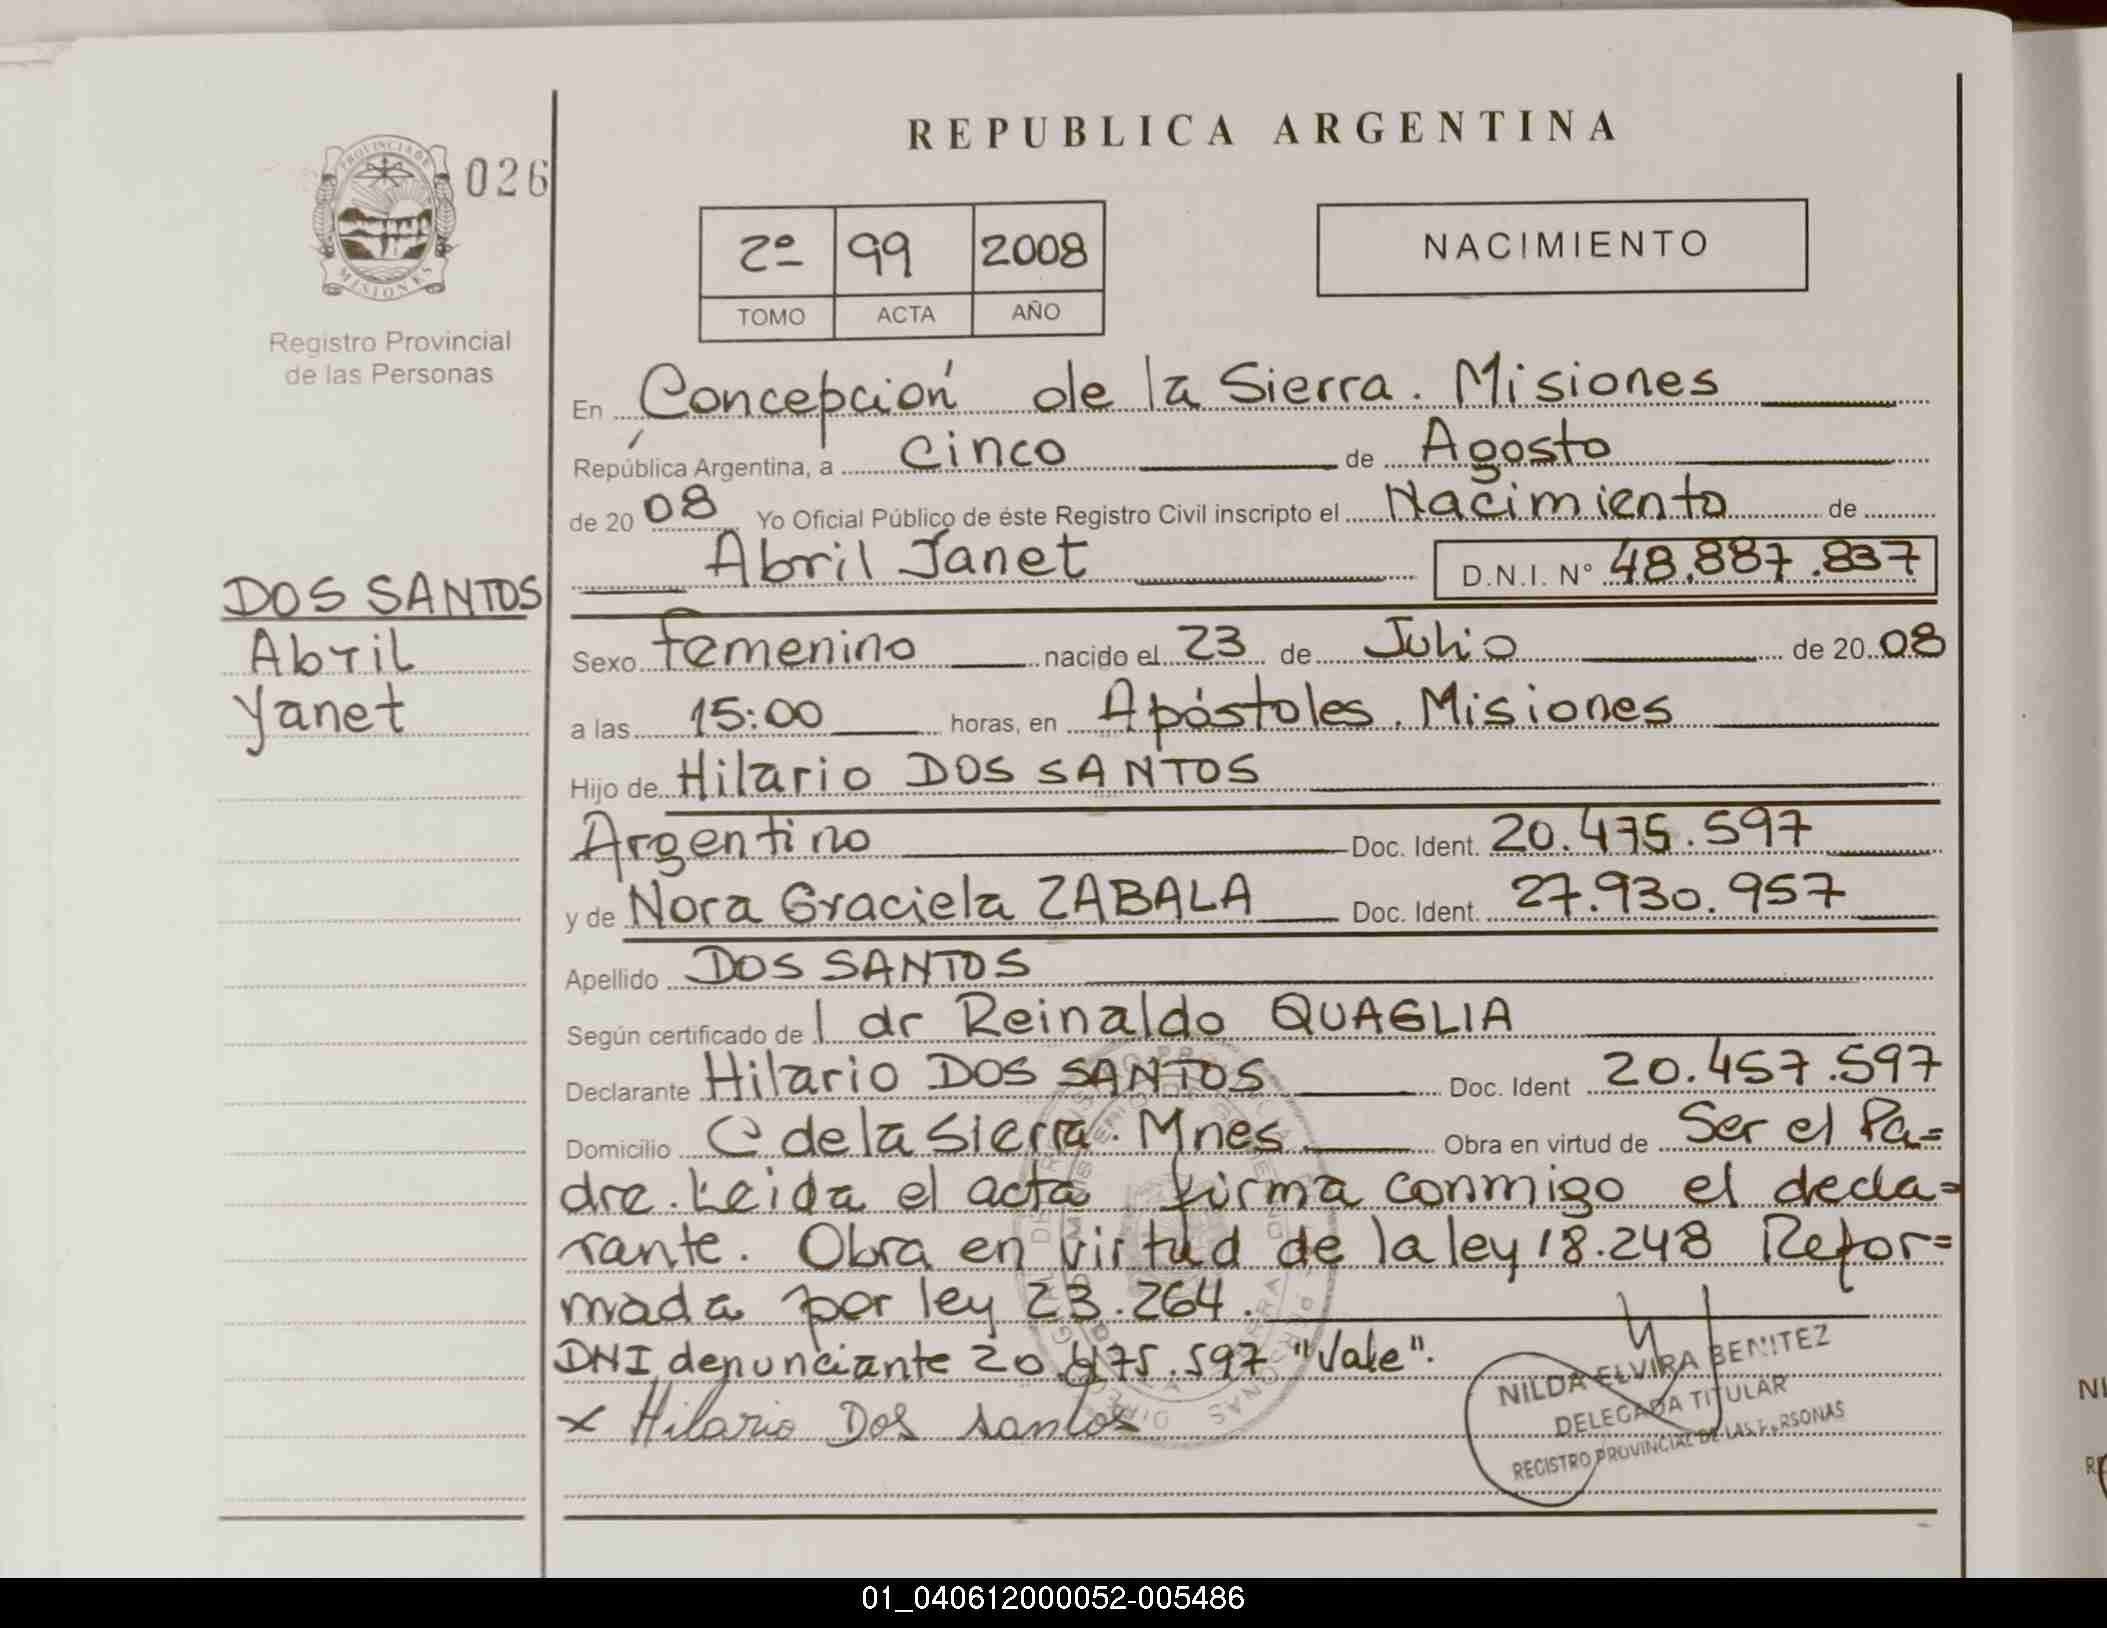 REPUBLICA ARGENTINA
PROVINCIA DE
MISIONES
026
Registro Provincial
de las Personas
2º 99 2008
TOMO ACTA AÑO
NACIMIENTO
En Concepción de la Sierra. Misiones
República Argentina, a cinco de Agosto
de 2008 Yo Oficial Público de éste Registro Civil inscripto el Nacimiento de
Abril Janet D.N.I. N° 48.887.837
DOS SANTOS
Abril
Yanet
Sexo femenino nacido el 23 de Julio de 2008
a las 15:00 horas, en Apóstoles. Misiones
Hijo de Hilario DOS SANTOS
Argentino Doc. Ident. 20.475.597
y de Nora Graciela ZABALA Doc. Ident. 27.930.957
Apellido DOS SANTOS
Según certificado de l dr Reinaldo QUAGLIA
Declarante Hilario DOS SANTOS Doc. Ident 20.457.597
Domicilio C de la Sierra. Mnes Obra en virtud de Ser el Pa=
dre. Leida el acta firma conmigo el decla=
rante. Obra en virtud de la ley 18.248 Refor=
mada por ley 23.264.
DNI denunciante 20.475.597 "Vale".
x Hilario Dos santos
NILDA ELVIRA BENITEZ
DELEGADA TITULAR
REGISTRO PROVINCIAL DE LAS PERSONAS
01_040612000052-005486